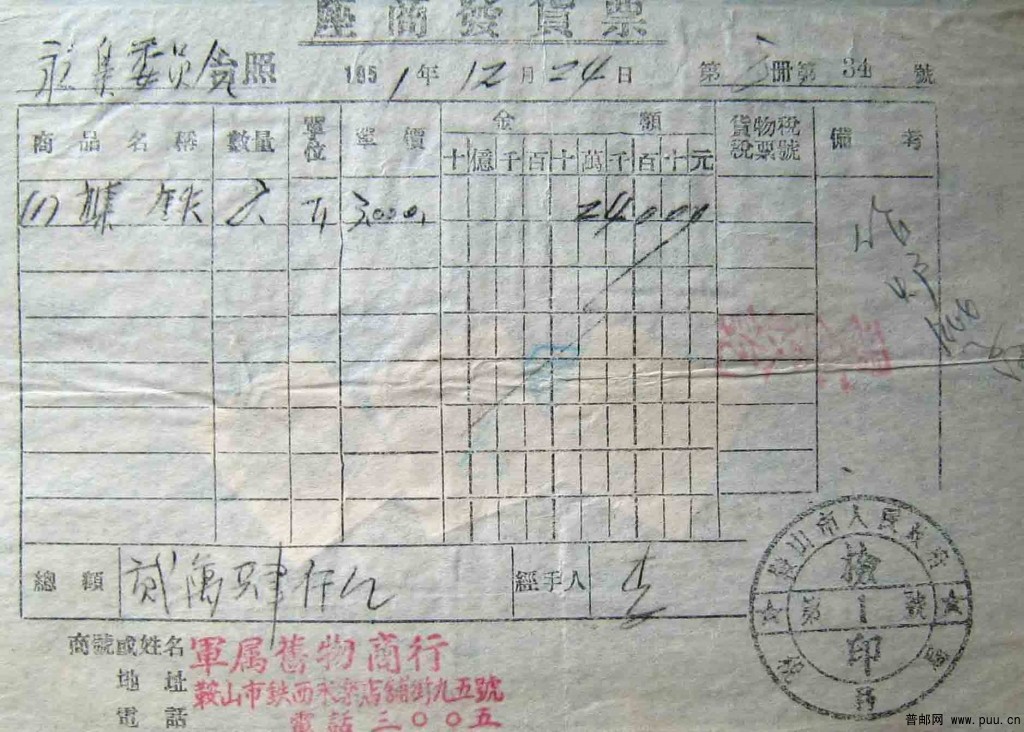 座商發貨票
委員會照 1951年12月24日 第 冊第34號
商品名稱 數量 單位 單價 金額 貨物稅稅票號 備考
十億千百十萬千百十元
(1) 鉄 3,000 24000
總額 貳萬肆仟 經手人
鞍山市人民政府稅 局
檢
第1號
印
商號或姓名 軍属舊物商行
地址 鞍山市鉄西永樂店舖街九五號
電話 電話三〇〇五
普邮网 www.puu.cn